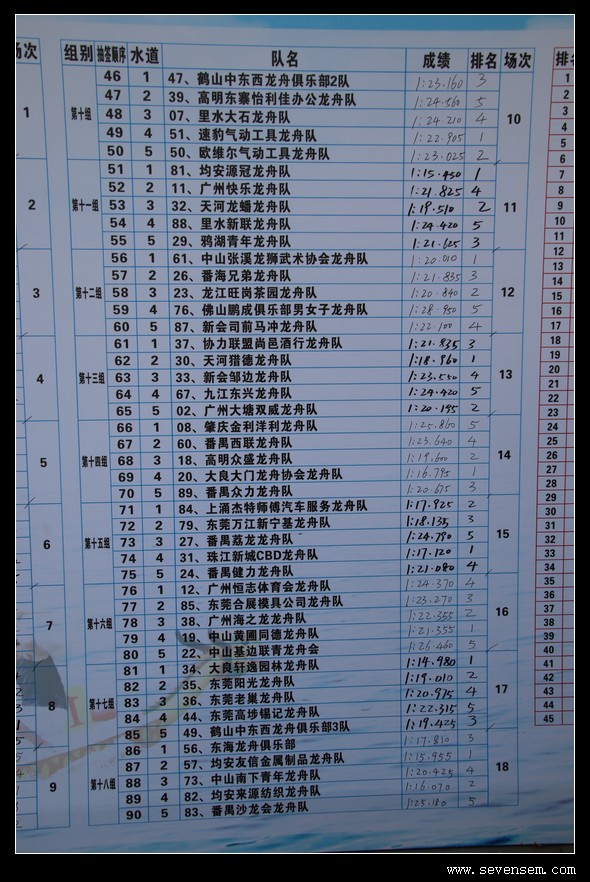 场次 组别 抽签顺序 水道 队名 成绩 排名 场次
第十组 10
46 1 47、鹤山中东西龙舟俱乐部2队 1:23.160 3
47 2 39、高明东寨怡利佳办公龙舟队 1:24.560 5
48 3 07、里水大石龙舟队 1:24.210 4
49 4 51、速豹气动工具龙舟队 1:22.905 1
50 5 50、欧维尔气动工具龙舟队 1:23.025 2
第十一组 11
51 1 81、均安源冠龙舟队 1:15.450 1
52 2 11、广州快乐龙舟队 1:21.825 4
53 3 32、天河龙蟠龙舟队 1:19.510 2
54 4 88、里水新联龙舟队 1:24.420 5
55 5 29、鸦湖青年龙舟队 1:21.625 3
第十二组 12
56 1 61、中山张溪龙狮武术协会龙舟队 1:20.010 1
57 2 26、番海兄弟龙舟队 1:21.835 3
58 3 23、龙江旺岗茶园龙舟队 1:20.840 2
59 4 76、佛山鹏成俱乐部男女子龙舟队 1:28.950 5
60 5 87、新会司前马冲龙舟队 1:22.100 4
第十三组 13
61 1 37、协力联盟尚邑酒行龙舟队 1:21.835 3
62 2 30、天河猎德龙舟队 1:18.960 1
63 3 33、新会邹边龙舟队 1:23.550 4
64 4 67、九江东兴龙舟队 1:24.420 5
65 5 02、广州大塘双威龙舟队 1:20.195 2
第十四组 14
66 1 08、肇庆金利洋利龙舟队 1:25.860 5
67 2 60、番禺西联龙舟队 1:23.640 4
68 3 18、高明众盛龙舟队 1:19.600 2
69 4 20、大良大门龙舟协会龙舟队 1:16.795 1
70 5 89、番禺众力龙舟队 1:20.675 3
第十五组 15
71 1 84、上涌杰特师傅汽车服务龙舟队 1:17.925 2
72 2 79、东莞万江新宁基龙舟队 1:18.135 3
73 3 27、番禺荔龙龙舟队 1:24.790 5
74 4 31、珠江新城CBD龙舟队 1:17.120 1
75 5 24、番禺健力龙舟队 1:21.080 4
第十六组 16
76 1 12、广州恒志体育会龙舟队 1:24.370 4
77 2 85、东莞合展模具公司龙舟队 1:23.270 3
78 3 38、广州海之龙龙舟队 1:22.355 2
79 4 19、中山黄圃同德龙舟队 1:21.355 1
80 5 22、中山基边联青龙舟会 1:26.460 5
第十七组 17
81 1 34、大良轩逸园林龙舟队 1:14.980 1
82 2 35、东莞阳光龙舟队 1:19.010 2
83 3 36、东莞老巢龙舟队 1:20.975 4
84 4 44、东莞高埗锡记龙舟队 1:22.315 5
85 5 49、鹤山中东西龙舟俱乐部3队 1:19.425 3
第十八组 18
86 1 56、东海龙舟俱乐部 1:17.810 3
87 2 57、均安友信金属制品龙舟队 1:15.955 1
88 3 73、中山南下青年龙舟队 1:20.425 4
89 4 82、均安来源纺织龙舟队 1:16.070 2
90 5 83、番禺沙龙会龙舟队 1:25.180 5
1
2
3
4
5
6
7
8
9
排
1
2
3
4
5
6
7
8
9
10
11
12
13
14
15
16
17
18
19
20
21
22
23
24
25
26
27
28
29
30
31
32
33
34
35
36
37
38
39
40
41
42
43
44
45
www.sevensem.com